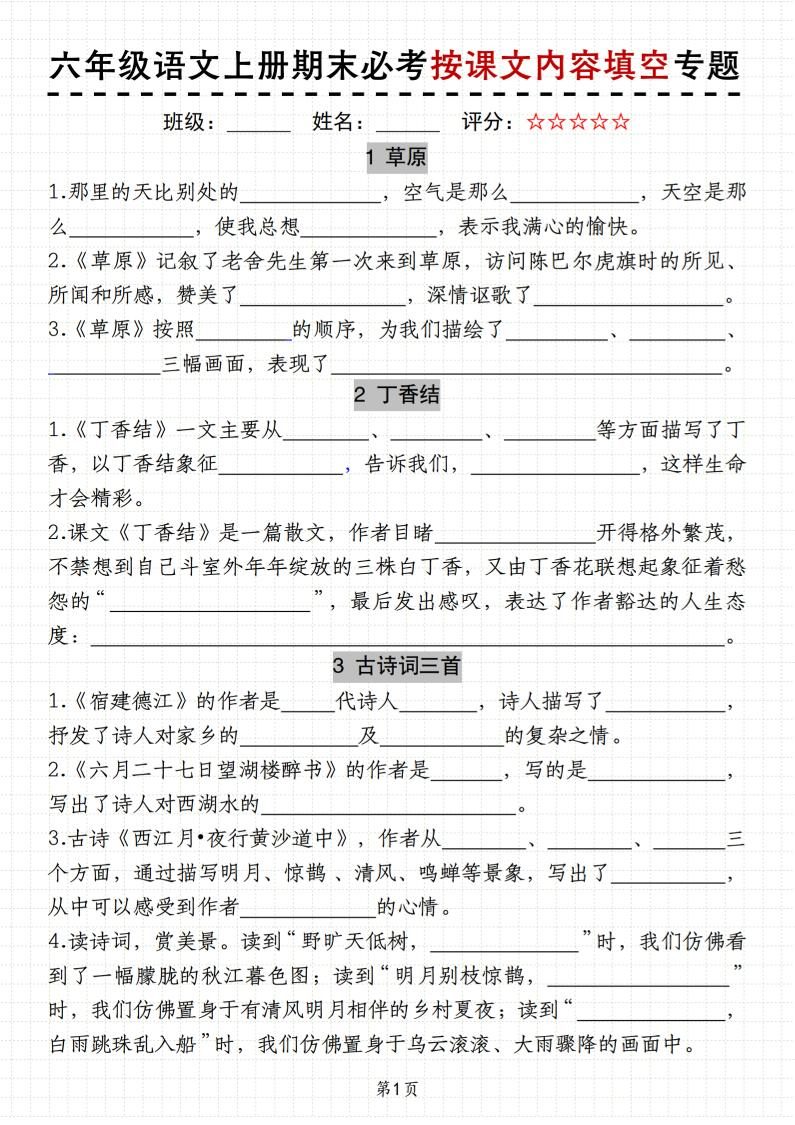 六年级语文上册期末必考按课文内容填空专题
班级：______ 姓名：______ 评分：☆☆☆☆☆
1 草原
1.那里的天比别处的____________，空气是那么____________，天空是那
么____________，使我总想____________，表示我满心的愉快。
2.《草原》记叙了老舍先生第一次来到草原，访问陈巴尔虎旗时的所见、
所闻和所感，赞美了______________，深情讴歌了________________。
3.《草原》按照________的顺序，为我们描绘了_________、__________、
__________三幅画面，表现了__________________________________。
2 丁香结
1.《丁香结》一文主要从________、________、________等方面描写了丁
香，以丁香结象征___________，告诉我们，______________，这样生命
才会精彩。
2.课文《丁香结》是一篇散文，作者目睹______________开得格外繁茂，
不禁想到自己斗室外年年绽放的三株白丁香，又由丁香花联想起象征着愁
怨的“__________________”，最后发出感叹，表达了作者豁达的人生态
度：________________________________________________________。
3 古诗词三首
1.《宿建德江》的作者是_____代诗人_______，诗人描写了__________，
抒发了诗人对家乡的__________及___________的复杂之情。
2.《六月二十七日望湖楼醉书》的作者是______，写的是____________，
写出了诗人对西湖水的______________________。
3.古诗《西江月•夜行黄沙道中》，作者从_______、_______、_______三
个方面，通过描写明月、惊鹊 、清风、鸣蝉等景象，写出了__________，
从中可以感受到作者____________的心情。
4.读诗词，赏美景。读到“野旷天低树，_____________”时，我们仿佛看
到了一幅朦胧的秋江暮色图；读到“明月别枝惊鹊，________________”
时，我们仿佛置身于有清风明月相伴的乡村夏夜；读到“_____________，
白雨跳珠乱入船”时，我们仿佛置身于乌云滚滚、大雨骤降的画面中。
第1页